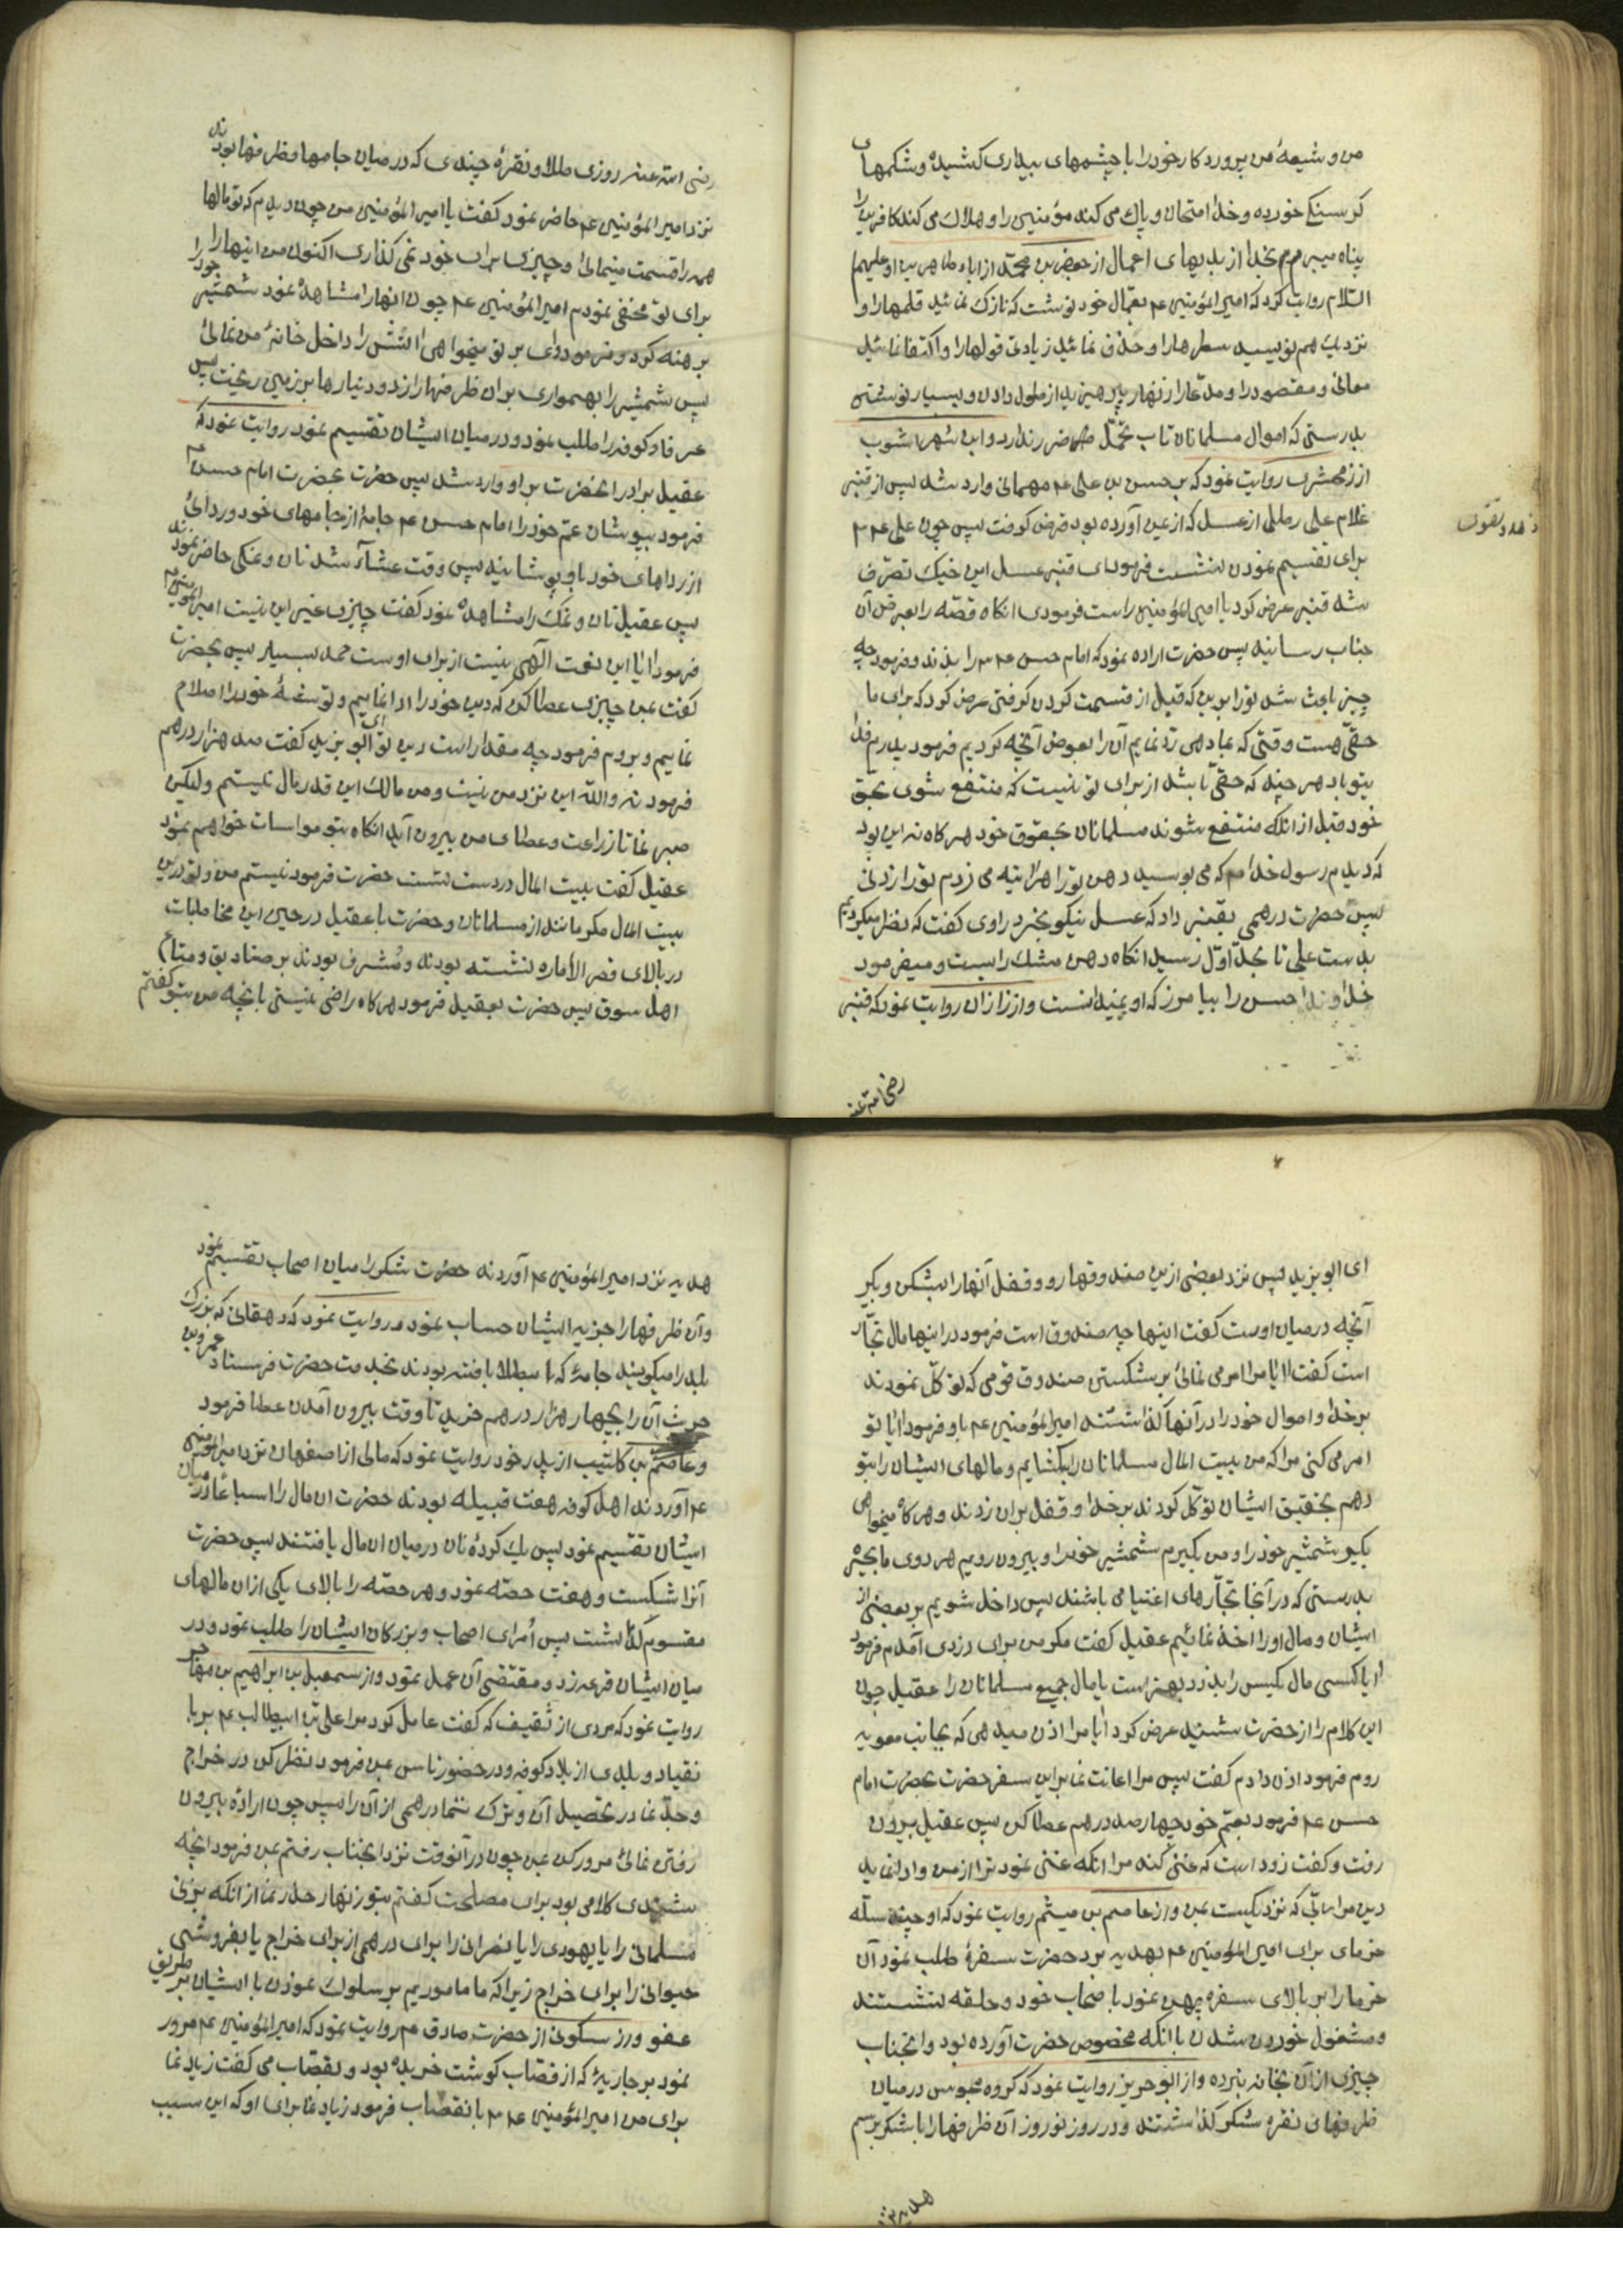 من و شیعهٔ من پروردکار خود را با چشمهای بیداری کشیده و شکمهای
کرسنکی خورده و خدا امتحان و پاک می کند مؤمنین را و هلاک می کند کافرین را
پناه میبرم بخدا از بدیهای اعمال از جعفر بن محمّد از اباء طاهرین او علیهم
السّلام روایت کرد که امیر المؤمنین عم بعمّال خود نوشت که نازک نمائید قلمها را و
نزدیک هم نویسید سطرها را و حذف نمائید زیادتی قولها را و اکتفا نمائید
معانی و مقصود را و مدّعا را زنهار بپرهیزید از طول دادن و بسیار نوشتن
بدرستی که اموال مسلمانان تاب تحمّل ضرر ندارد و ابن شهر اشوب
از زمخشری روایت نمود که بر حسن بن علی عم مهمانی وارد شد پس از قنبر
غلام علی رطلی از عسل که از یمن آورده بود قرض کرفت پس چون علی عم
زهد و تقوی
برای تقسیم نمودن بنشست فرمود ای قنبر عسل این خیک تصرّف
شد قنبر عرض کرد یا امیر المؤمنین راست فرمودی انکاه قصّه را بعرض آن
جناب رسانید پس حضرت اراده نمود که امام حسن عم را بزند و فرمود چه
چیز باعث شد تو را برین که قبل از قسمت کردن کرفتی عرض کرد که برای ما
حقّی هست وقتی که بما دهی ردّ نمایم آن را بعوض آنچه کردیم فرمود پدرم فدا
بتو باد هر چند که حقّی باشد از برای تو نیست که منتفع شوی بحق
خود قبل از انکه منتفع شوند مسلمانان بحقوق خود هر کاه نه این بود
که دیدم رسول خدا صم که می بوسید دهن تو را هراینه می زدم تو را زدنی
پس حضرت درهمی بقنبر داد که عسل نیکو بخرد راوی کفت که نظر میکردیم
بدست علی تا بحدّ اوّل رسید انکاه دهن مشک را بست و میفرمود
خداوندا حسن را بیامرز که او نمیدانست و از زازان روایت نمود که قنبر
رضی الله عنه
رضی الله عنه روزی طلا و نقرهٔ چندی که در میان جامها و ظرفها بودند
نزد امیر المؤمنین عم حاضر نمود کفت یا امیر المؤمنین من چون دیدم که تو مالها
همه را قسمت مینمائی و چیزی برای خود نمی کذاری اکنون من اینها را
برای تو مخفی نمودم امیر المؤمنین عم چون انها را مشاهده نمود شمشیر خود را
برهنه کرد و فرمود وای بر تو میخواهی اتش را داخل خانهٔ من نمائی
پس شمشیر را بهمواری بران ظرفها را زد و دینارها بر زمین ریخت پس
عرفاء کوفه را طلب نمود و در میان ایشان تقسیم نمود روایت نمود که
عقیل برادر انحضرت بر او وارد شد پس حضرت بحضرت امام حسن عم
فرمود بپوشان عم خود را امام حسن عم جامهٔ از جامهای خود و ردائی
از رداهای خود باو پوشانید پس وقت عشاء شد نان و نمکی حاضر نمودند
پس عقیل نان و نمک را مشاهده نمود کفت چیزی غیر این نیست امیر المؤمنین عم
فرمود ایا این نعمت الهی نیست از برای اوست حمد بسیار پس بحضرت
کفت بمن چیزی عطا کن که دین خود را ادا نمایم و توشهٔ خود را اصلاح
نمایم و بروم فرمود چه مقدار است دین تو ای ابو یزید کفت صد هزار درهم
فرمود نه والله این نزد من نیست و من مالک این قدر مال نیستم ولیکن
صبر نما تا زراعت و عطای من بیرون آید انکاه بتو مواسات خواهم نمود
عقیل کفت بیت المال در دست تست حضرت فرمود نیستم من و تو درین
بیت المال مکر مانند از مسلمانان و حضرت با عقیل در حین این مخاطبات
در بالای قصر الأماره نشسته بودند و مشرف بودند بر صنادیق و متاع
اهل سوق پس حضرت بعقیل فرمود هر کاه راضی نیستی بانچه من بتو کفتم
ای ابو یزید پس نزد بعضی ازین صندوقها رو و قفل آنها را بشکن و بکیر
آنچه در میان اوست کفت اینها چه صندوق است فرمود در اینها مال تجّار
است کفت ایا مرا امر می نمائی بر شکستن صندوق قومی که توکّل نمودند
بر خدا و اموال خود را در آنها کذاشتند امیر المؤمنین عم باو فرمود ایا تو
امر می کنی مرا که من بیت المال مسلمانان را بکشایم و مالهای ایشان را بتو
دهم بتحقیق ایشان توکّل کردند بر خدا و قفل بران زدند و هر کاه میخواهی
بکیر شمشیر خود را و من بکیرم شمشیر خود را و بیرون رویم هر دوی ما بحیره
بدرستی که در آنجا تجّارهای اغنیا می باشند پس داخل شویم بر بعضی از
ایشان و مال او را اخذ نمائیم عقیل کفت مکر من برای دزدی آمدم فرمود
ایا کسی مال یکس را بدزدد بهتر است یا مال جمیع مسلمانان را عقیل چون
این کلام را از حضرت شنید عرض کرد ایا مرا اذن میدهی که بجانب معویه
روم فرمود اذن دادم کفت پس مرا اعانت نما براین سفر حضرت بحضرت امام
حسن عم فرمود بعم خود چهار صد درهم عطا کن پس عقیل بیرون
رفت و کفت زود است که غنی کند مرا انکه غنی نمود ترا از من و ادا نماید
دین مرا انی که نزدیکست بمن و از عاصم بن میثم روایت نمود که او چند سلّه
خرمای برای امیر المؤمنین عم بهدیه برد حضرت سفرهٔ طلب نمود آن
خرما را بر بالای سفره پهن نمود با صحاب خود و حلقه بنشستند
و مشغول خوردن شدن باانکه مخصوص حضرت آورده بود و انجناب
چیزی از آن بخانه نبرده و از ابو حریز روایت نمود که کروه مجوس در میان
ظرفهای نقره شکر کذاشتند و در روز نوروز آن ظرفها را با شکر برسم
هدیه نزد
هدیه نزد امیر المؤمنین عم آوردند حضرت شکر را میان اصحاب تقسیم نمود
و آن ظرفها را جزیه ایشان حساب نمود و روایت نمود که دهقانی که بزرک
بلد را میکویند جامهٔ که با طلا بافته بودند بخدمت حضرت فرستاد عمرو بن
حریث آن را بچهار هزار درهم خرید تا وقت بیرون آمدن عطا فرمود
و عاصم بن کلیب از پدر خود روایت نمود که مالی از اصفهان نزد امیر المؤمنین
عم آوردند اهل کوفه هفت قبیله بودند حضرت ان مال را اسباعا در میان
ایشان تقسیم نمود پس یک کردهٔ نان در میان ان مال یافتند پس حضرت
آنرا شکست و هفت حصّه نمود و هر حصّه را بالای یکی از ان مالهای
مقسوم کذاشت پس أمرای اصحاب و بزرکان ایشان را طلب نمود و در
میان ایشان قرعه زد و مقتضی آن عمل نمود و از سمعیل بن ابراهیم بن مهاجر
روایت نمود که مردی از ثقیف که کفت عامل کرد مرا علی بن ابیطالب عم بر با
نقیاد و بلدی از بلاد کوفه و در حضور ناس بمن فرمود نظر کن در خراج
و جدّ نما در تحصیل آن و ترک ننما درهمی از آن را پس چون ارادهٔ بیرون
رفتن نمائی مرور کن بمن چون در آنوقت نزد انجناب رفتم بمن فرمود انچه
شنیدی کلامی بود برای مصلحت کفتم بتو زنهار حذر نما از انکه بزنی
مسلمانی را یا یهودی را یا نصرانی را برای درهمی از برای خراج یا بفروشی
حیوانی را برای خراج زیرا که ما ماموریم بر سلوک نمودن با ایشان بر طریق
عفو و از سکونی از حضرت صادق عم روایت نمود که امیر المؤمنین عم مرور
نمود بر جاریهٔ که از قصّاب کوشت خریده بود و بقصّاب می کفت زیاد نما
برای من امیر المؤمنین عم باانقصّاب فرمود زیاد نما برای او که این سبب